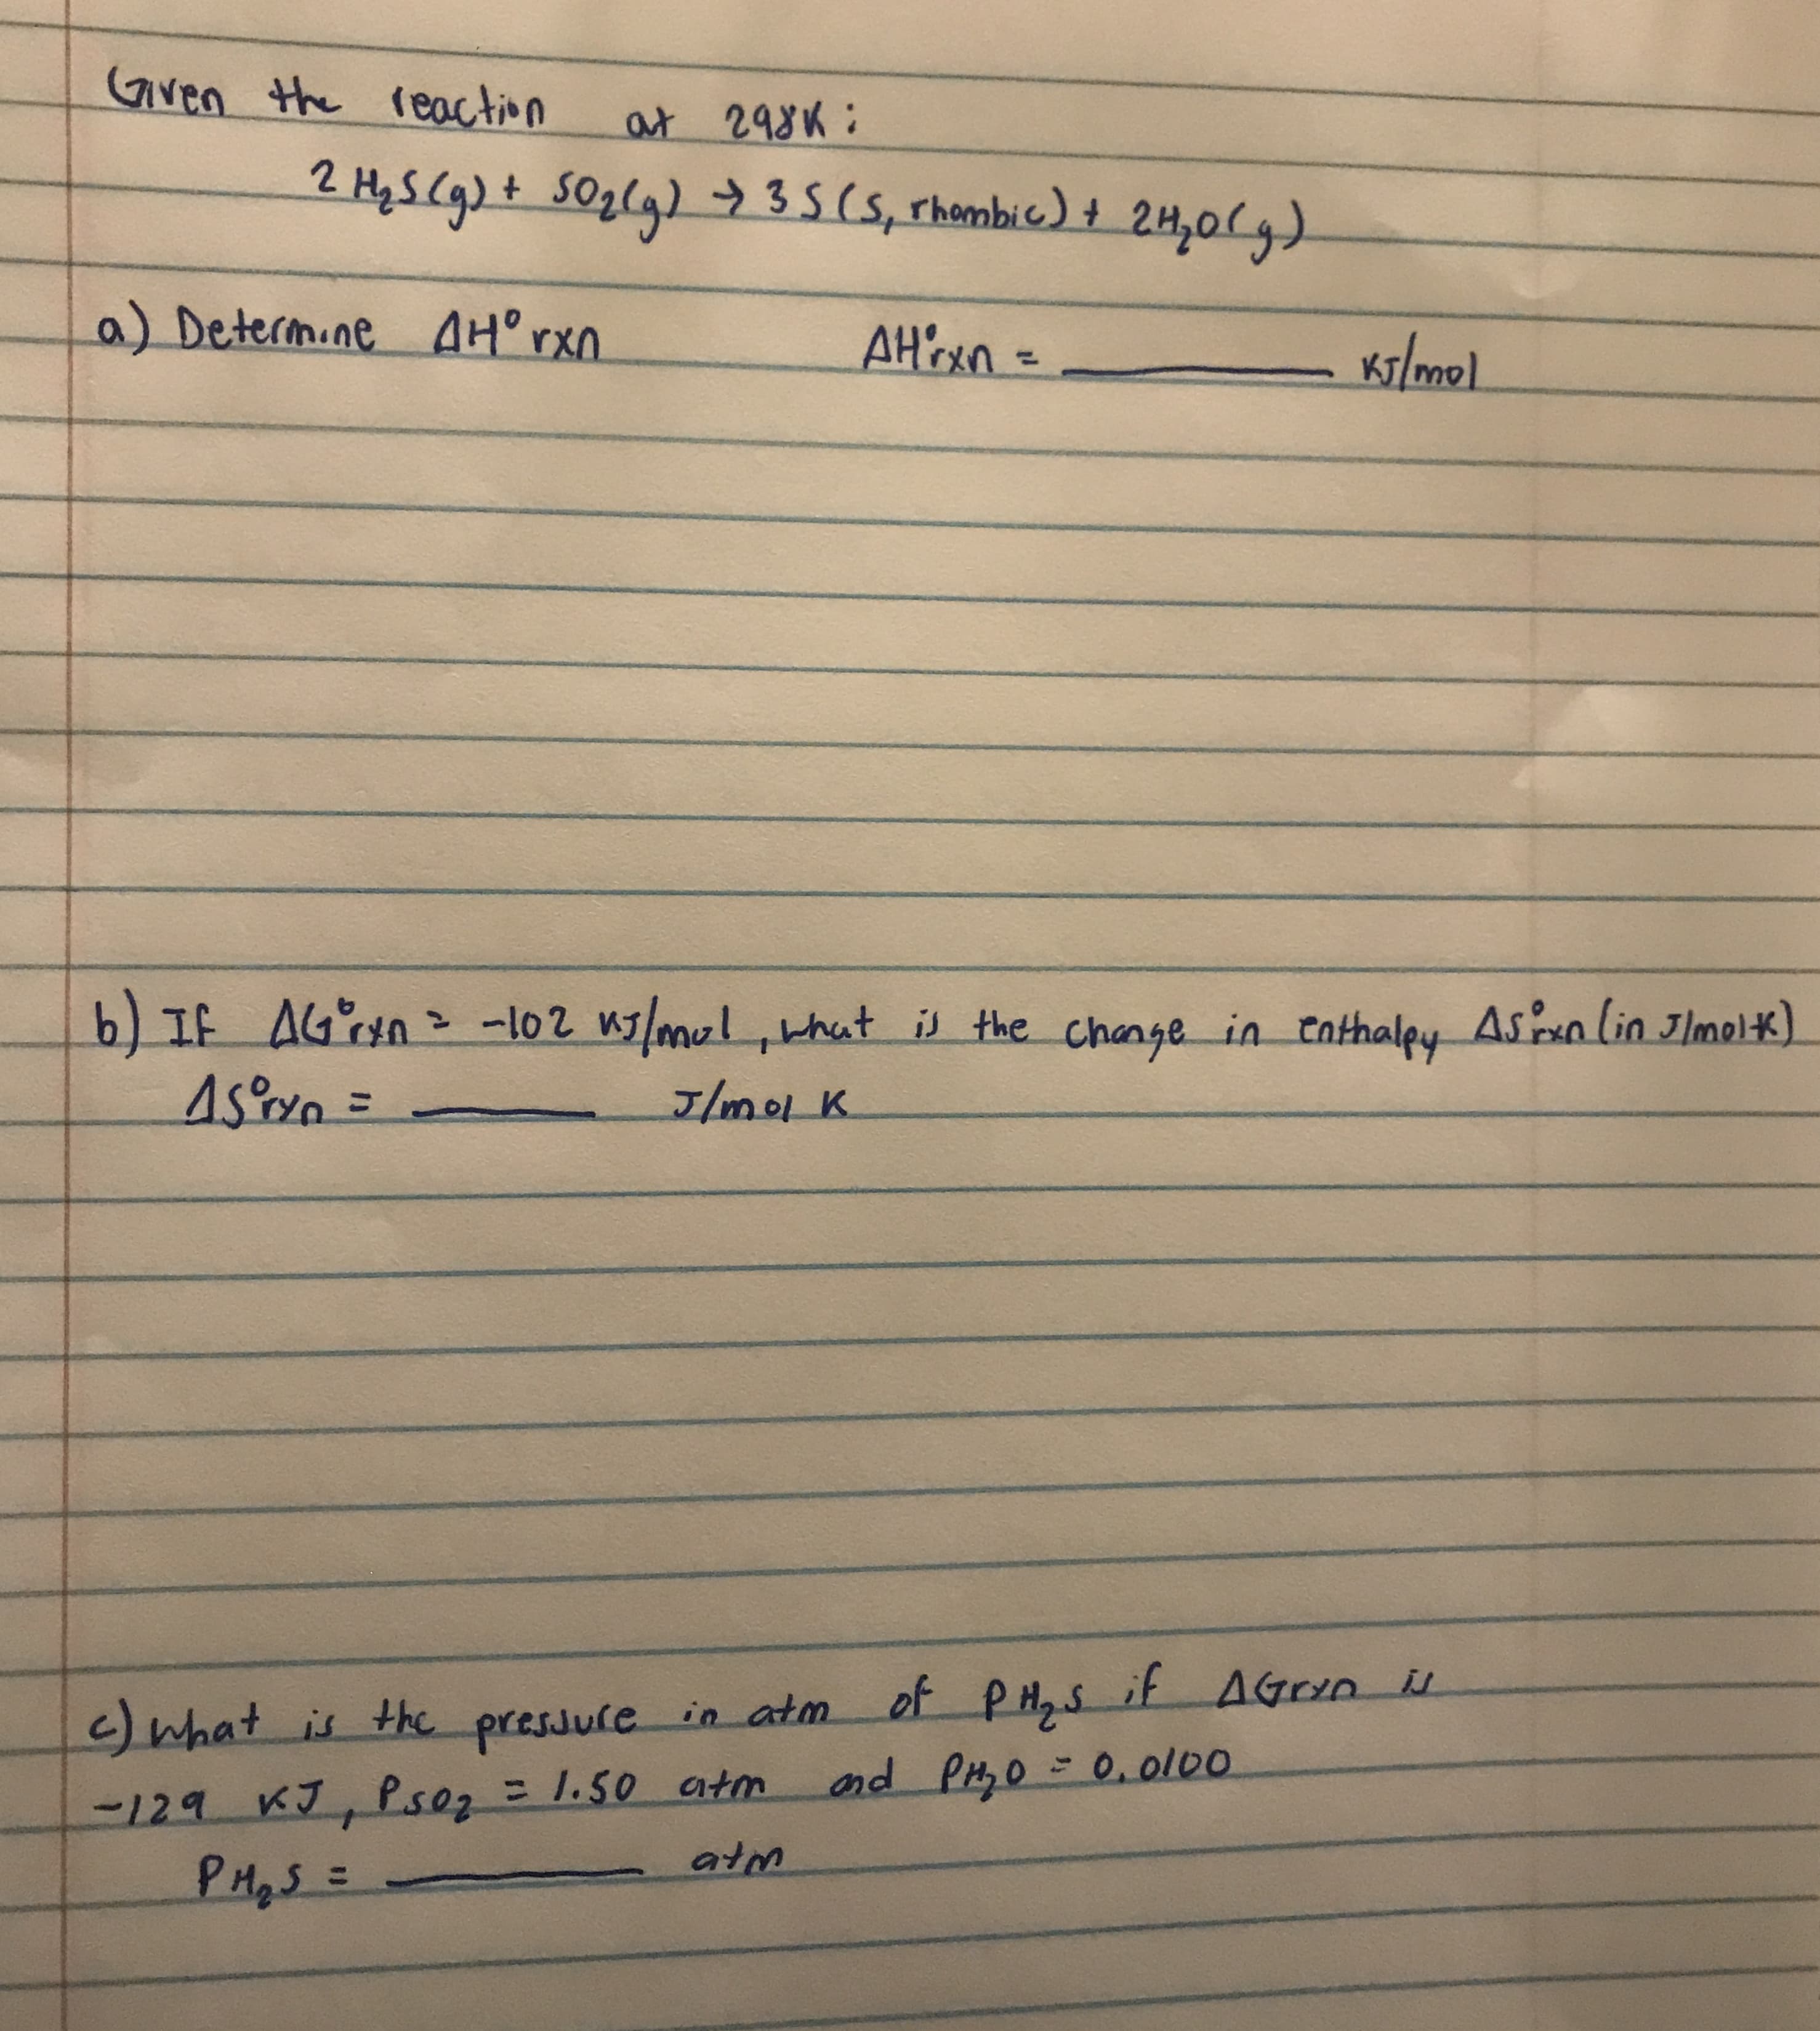 Given the reaction at 298K:
2 H₂S(g) + SO₂(g) → 3 S (s, rhombic) + 2H₂O(g)
a) Determine ΔH° rxn ΔH°rxn = ________ KJ/mol
b) If ΔG°rxn = -102 KJ/mol, what is the change in enthalpy ΔS°rxn (in J/mol·K)
ΔS°rxn = ______ J/mol K
c) What is the pressure in atm of PH₂S if ΔGrxn is
-129 KJ, PSO₂ = 1.50 atm and PH₂O = 0.0100
PH₂S = ________ atm